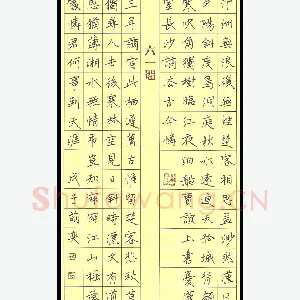 汀洲無浪復無煙楚客相思益渺然漢
口夕陽斜度鳥洞庭秋水遠連天孤城背嶺
寒吹角獨戍臨江夜泊船賈誼上書憂漢
室長沙謫去古今憐
六一
三年謫宦此棲遲萬古惟留楚客悲秋草
獨尋人去後寒林空見日斜時漢文有道
恩猶薄湘水無情弔豈知寂寂江山搖落
處憐君何事到天涯 戊子